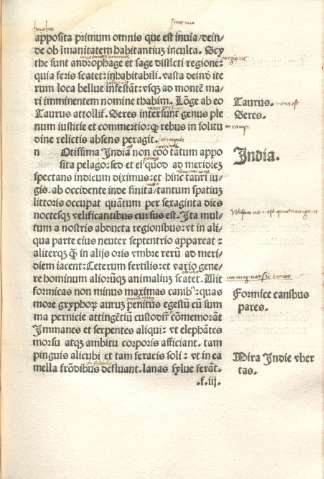 apposita primum omnio que est inuia: dein/
de ob Immanitatem habitantius inculta. Scy
the sunt androphage et sage distlcti regione:
quia feris scatet: inhabitabili. vasta deinde ite
rum loca bellue infestant: vsq3 ad montem ma
ri imminentem nomine thabim. Loge ab eo
Taurus attollit. Seres intersunt genus ple
num iusticie et commertio: q rebus in solitu
dine relictis absens peragit.
Taurus.
Seres.
n Otissima India non eoo tatum appo
sita pelago: sed et ei quod ad meridiez
spectans indicum diximus: et hinc tauri iu/
gis. ab occidente inde finita: tantum spatius
India.
littoris occupat quantum per sexaginta dies
noctesq3 velificantibus cursus est. Ita mul/
tum a nostris abducta regionibus: vt in ali/
qua parte eius neuter septentrio appareat:
aliterq3 q in alijs oris vmbre reru ad meri/
diem iacent: Ceterum fertilis: et vario gene/
re hominum aliorumq3 animalius scatet. Alit
formicas non minus maximis canib9: quas
more gryphor aurus penitus egestu cu sum
Formice canibus
pares.
ma pernicie attingetiu custodire comemorat
Immanes et serpentes aliqui: vt elephates
morsu atq3 ambitu corporis afficiant. tam
pinguis alicubi et tam feracis soli: vt in ea
mella frodibus defluant. lanas sylue ferat.
Mira Indie vber
tas.
.f.iij.